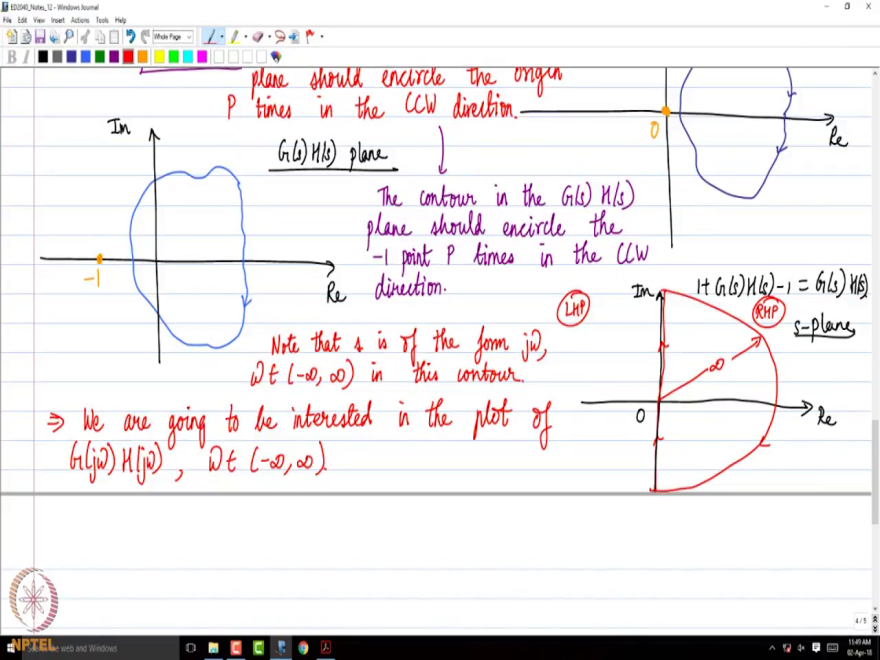 ED2040_Notes_12 - Windows Journal
File Edit View Insert Actions Tools Help
Whole Page
B I
plane should encircle the origin
P times in the CCW direction.
0
Re
Im
G(s)H(s) plane
The contour in the G(s)H(s)
plane should encircle the
-1 point P times in the CCW
direction.
-1
Re
1+G(s)H(s)-1 = G(s)H(s)
Im
LHP
RHP
s-plane
∞
0
Re
Note that s is of the form jω,
ω ∈ (-∞, ∞) in this contour.
⇒ We are going to be interested in the plot of
G(jω)H(jω), ω ∈ (-∞, ∞).
4 / 5
NPTEL
11:49 AM
02-Apr-18